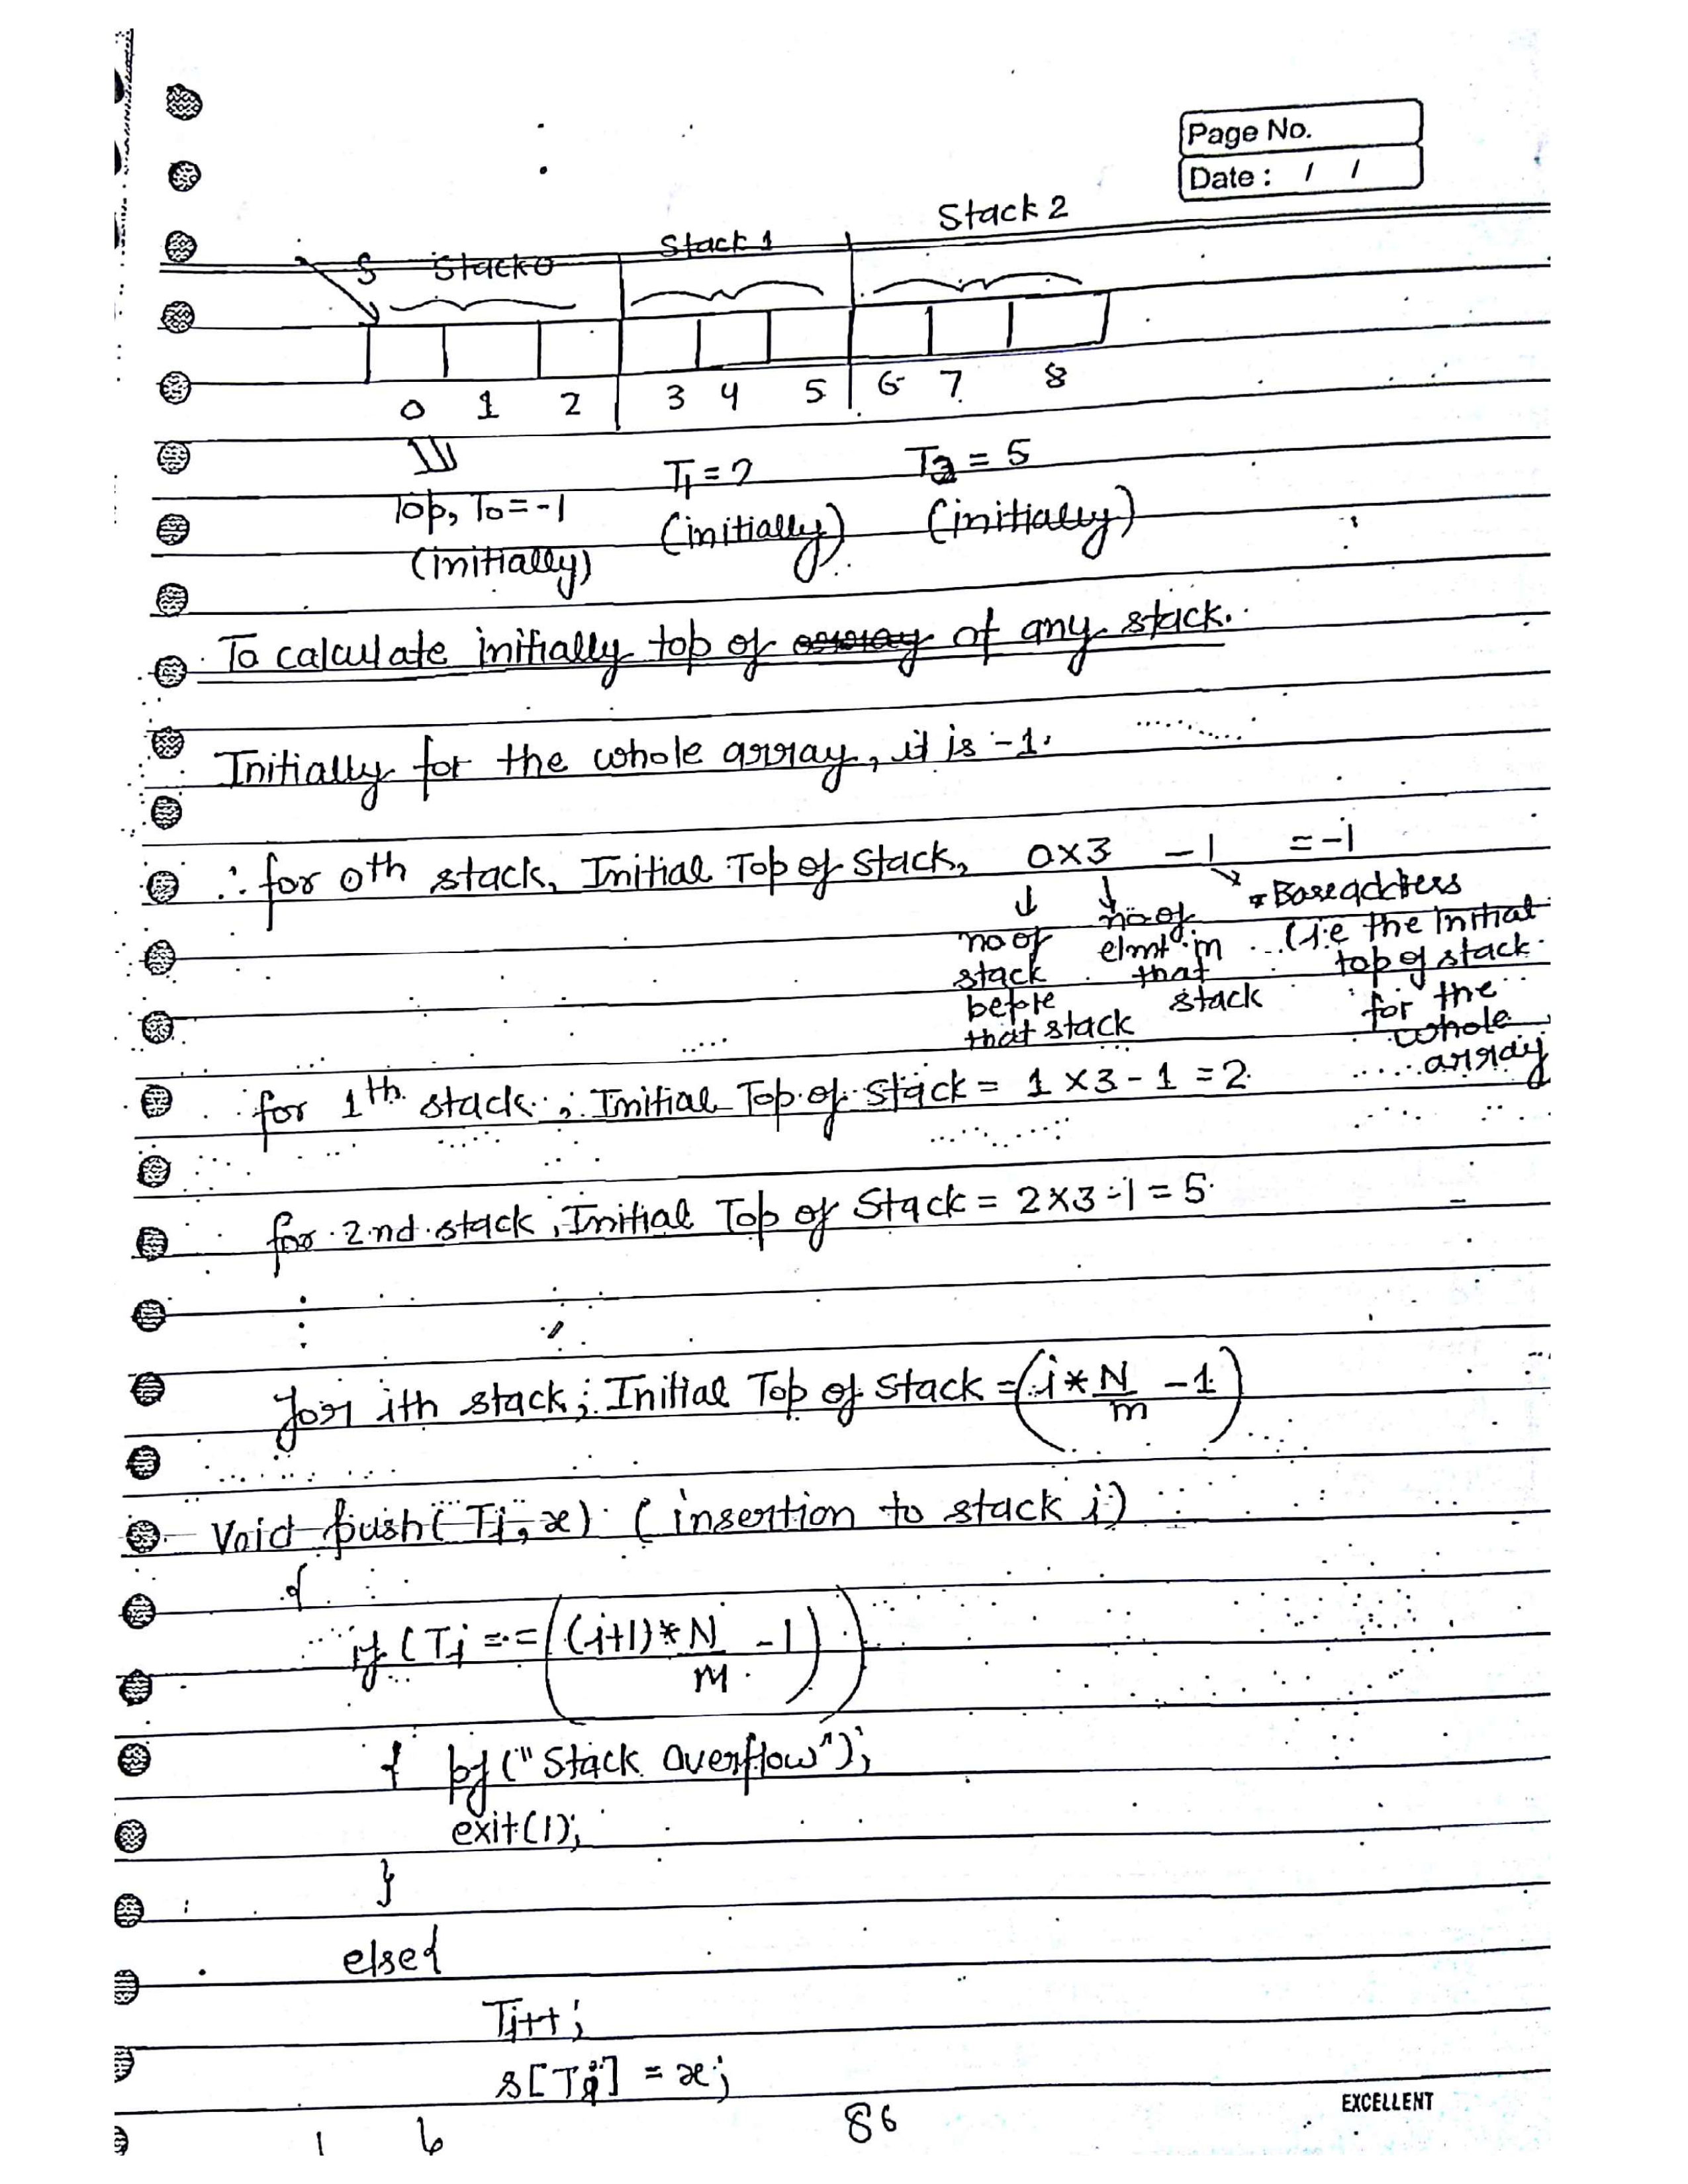 Page No.
Date : / /
Stack 2
S Stack 0 Stack 1
0 1 2 3 4 5 6 7 8
T1 = 2 T2 = 5
Top, T0 = -1 (initially) (initially)
(initially)
To calculate initially top of of any stack.
Initially for the whole array, it is -1.
∴ for 0th stack, Initial Top of Stack, 0×3 - 1 = -1
no of stack before that stack
no of elmt in that stack
Base address (i.e the Initial top of stack for the whole array
for 1th stack ; Initial Top of Stack = 1×3-1 = 2
for 2nd stack, Initial Top of Stack = 2×3-1 = 5
for ith stack; Initial Top of Stack = (i*N/m -1)
Void push(Ti, x) (insertion to stack i)
{
if (Ti == ((i+1)*N/M -1))
{ pf("Stack Overflow");
exit(1);
}
else{
Ti++;
s[Ti] = x;
1 6 86
EXCELLENT